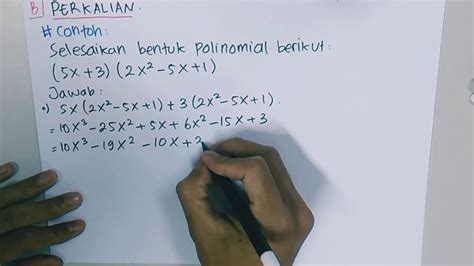 B) PERKALIAN.
# Contoh:
Selesaikan bentuk polinomial berikut:
(5x+3) (2x²-5x+1)
Jawab:
•) 5x(2x²-5x+1) + 3(2x²-5x+1).
= 10x³-25x²+5x+6x²-15x+3
= 10x³-19x²-10x+3